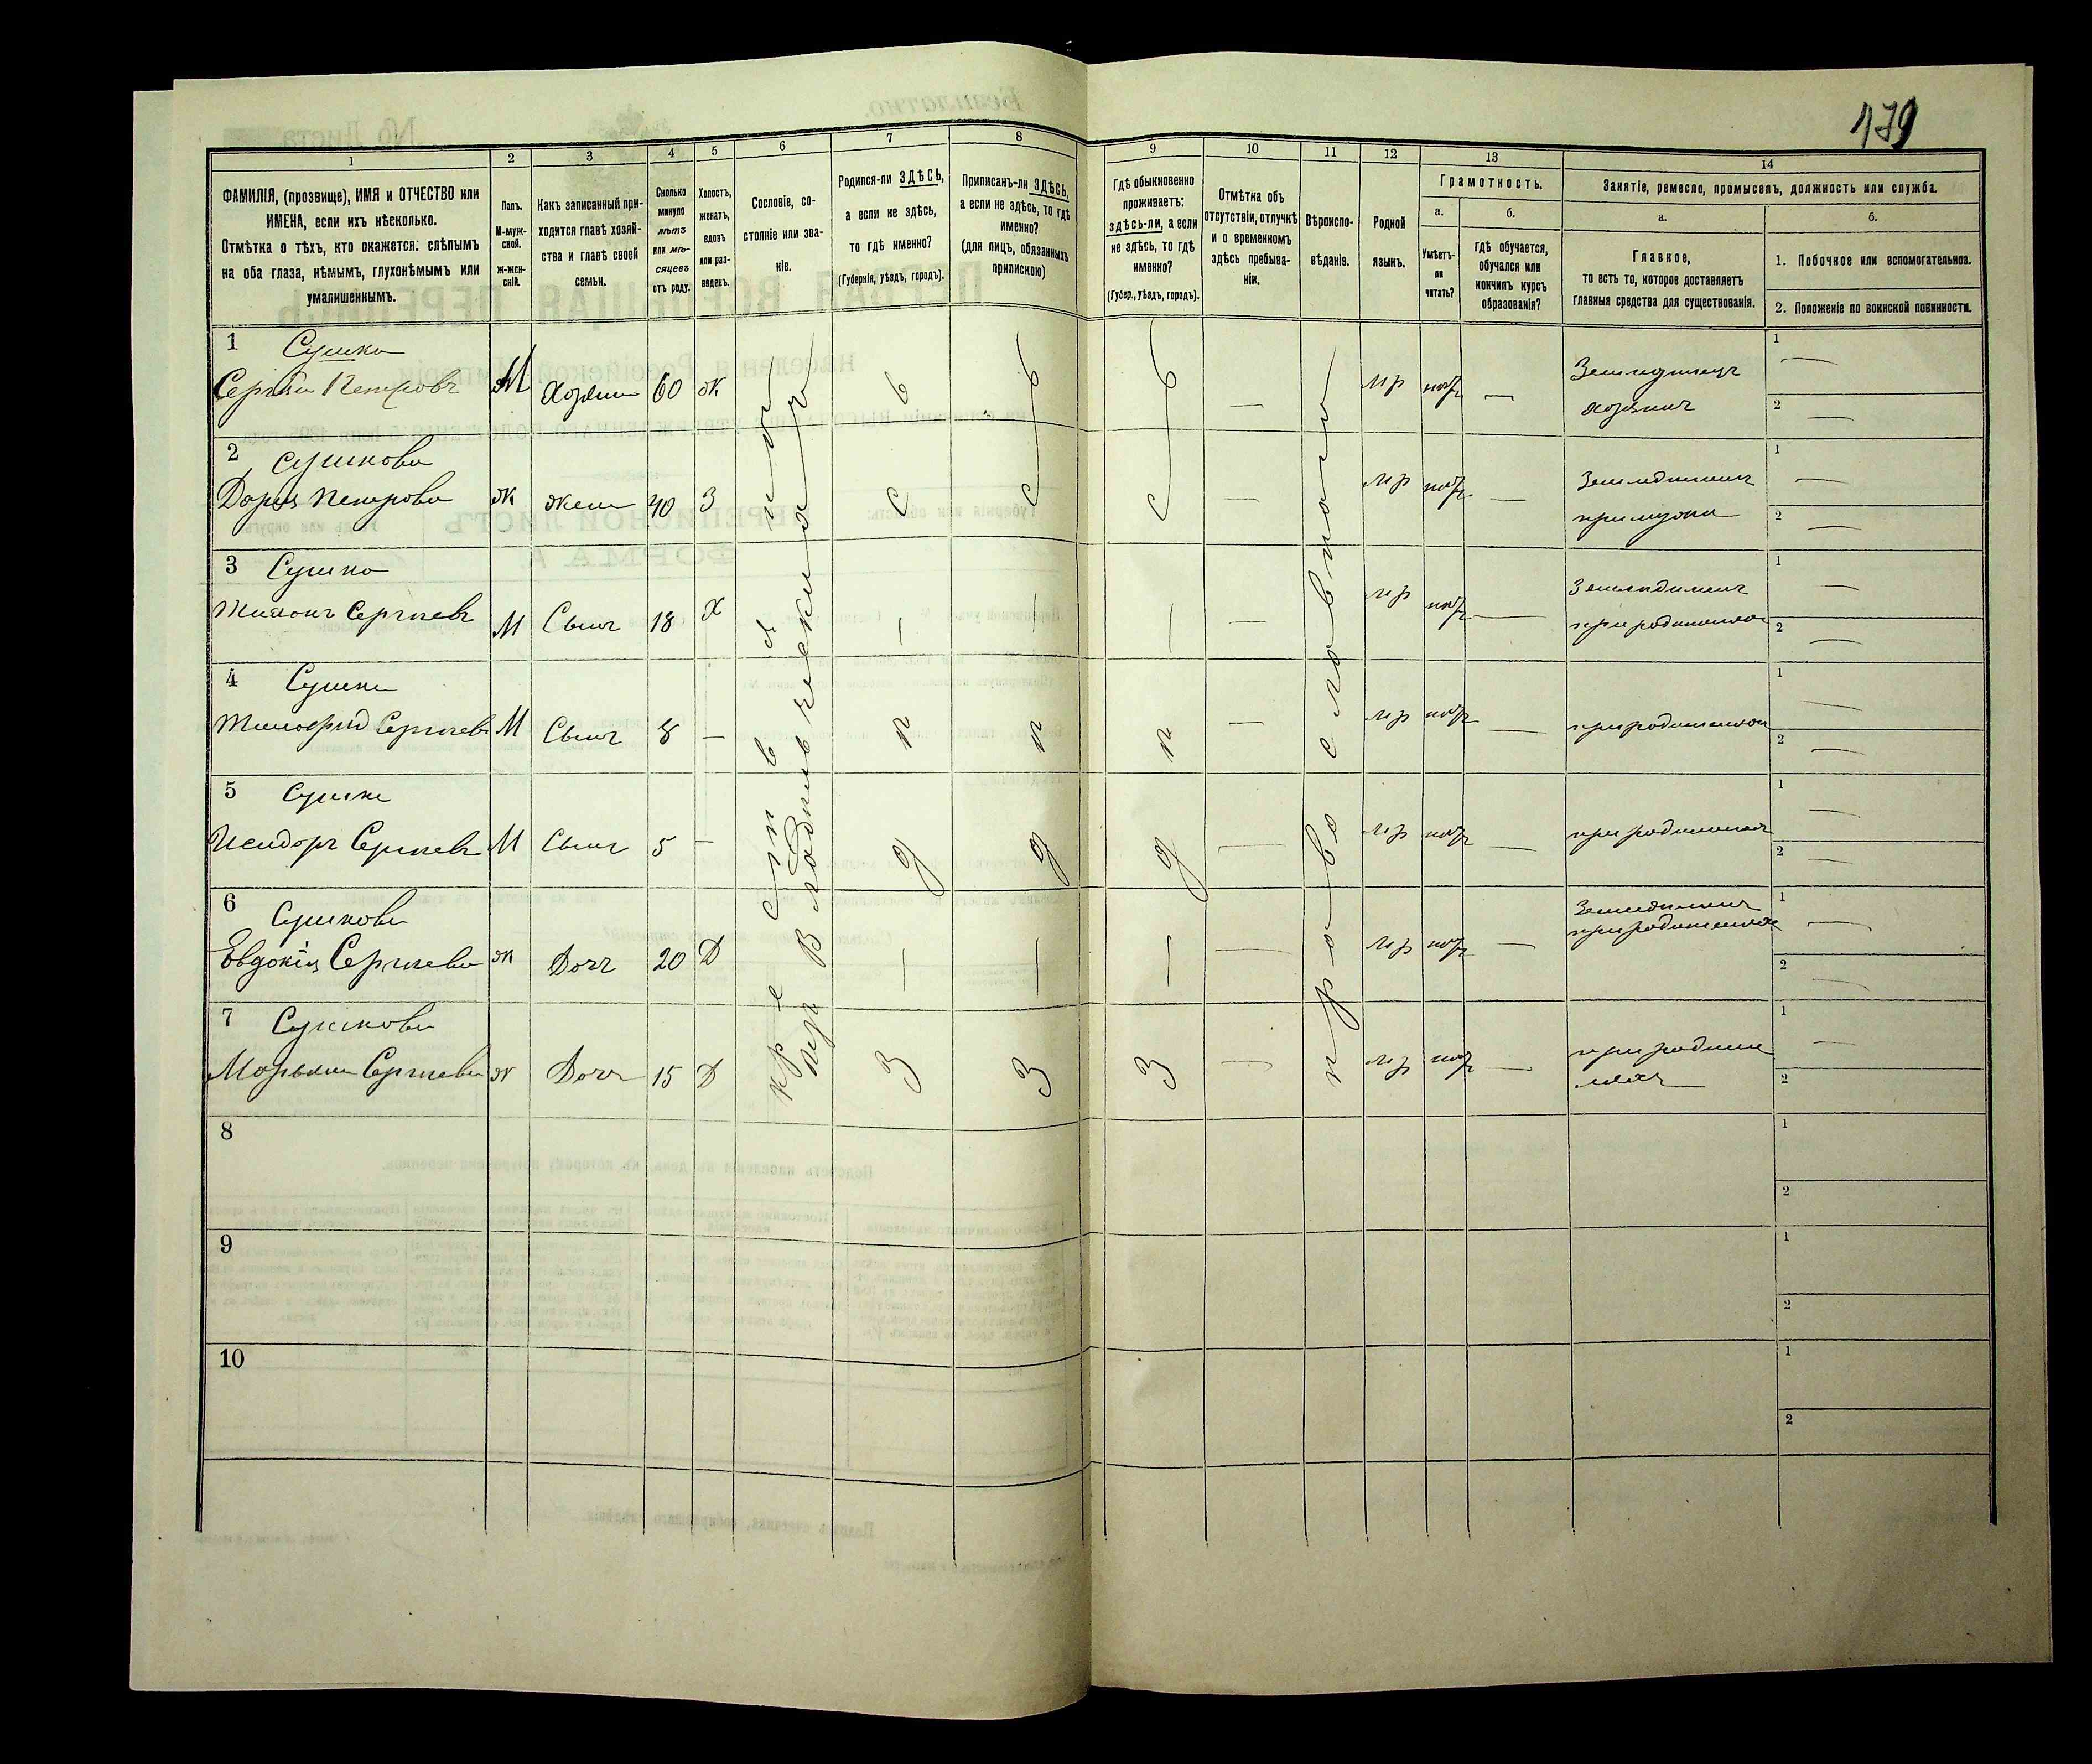 179
1 2 3 4 5 6 7 8 9 10 11 12 13 14
ФАМИЛІЯ, (прозвище), ИМЯ и ОТЧЕСТВО или
ИМЕНА, если ихъ нѣсколько.
Отмѣтка о тѣхъ, кто окажется: слѣпымъ
на оба глаза, нѣмымъ, глухонѣмымъ или
умалишеннымъ.
Полъ.
М-муж-
ской.
ж-жен-
скій.
Какъ записанный при-
ходится главѣ хозяй-
ства и главѣ своей
семьи.
Сколько
минуло
лѣтъ
или мѣ-
сяцевъ
отъ роду.
Холостъ,
женатъ,
вдовъ
или раз-
веденъ.
Сословіе, со-
стояніе или зва-
ніе.
Родился-ли ЗДѢСЬ,
а если не здѣсь,
то гдѣ именно?
(Губернія, уѣздъ, городъ).
Приписанъ-ли ЗДѢСЬ,
а если не здѣсь, то гдѣ
именно?
(для лицъ, обязанныхъ
припискою)
Гдѣ обыкновенно
проживаетъ:
здѣсь-ли, а если
не здѣсь, то гдѣ
именно?
(Губер., уѣздъ, городъ).
Отмѣтка объ
отсутствіи, отлучкѣ
и о временномъ
здѣсь пребыва-
ніи.
Вѣроиспо-
вѣданіе.
Родной
языкъ.
Грамотность.
а.
Умѣетъ-
ли
читать?
б.
гдѣ обучается,
обучался или
кончилъ курсъ
образованія?
Занятіе, ремесло, промыселъ, должность или служба.
а.
Главное,
то есть то, которое доставляетъ
главныя средства для существованія.
б.
1. Побочное или вспомогательное.
2. Положеніе по воинской повинности.
1 Сушко
Сергѣй Петровъ М Хозяин 60 ж мр нѣтъ — Земледѣлецъ
хозяинъ
1 —
2 —
2 Сушкова
Дарья Петрова ж жена 40 З — мр нѣтъ — Земледѣлие
при мужѣ
1 —
2 —
3 Сушко
Тихонъ Сергѣевъ М Сынъ 18 Х — мр нѣтъ — Земледѣлие
при родителях
1 —
2 —
4 Сушко
Тимофей Сергѣевъ М Сынъ 8 — — мр нѣтъ — при родителях
1 —
2 —
5 Сушко
Исидоръ Сергѣевъ М Сынъ 5 — — мр нѣтъ — при родителях
1 —
2 —
6 Сушкова
Евдокія Сергѣева ж Дочь 20 Д — мр нѣтъ — Земледѣлие
при родителях
1 —
2 —
7 Сушкова
Марьяна Сергѣева ж Дочь 15 Д — мр нѣтъ — при роди
телях
1 —
2 —
здѣсь
здѣсь
здѣсь
православной
8
1
2
9
1
2
10
1
2